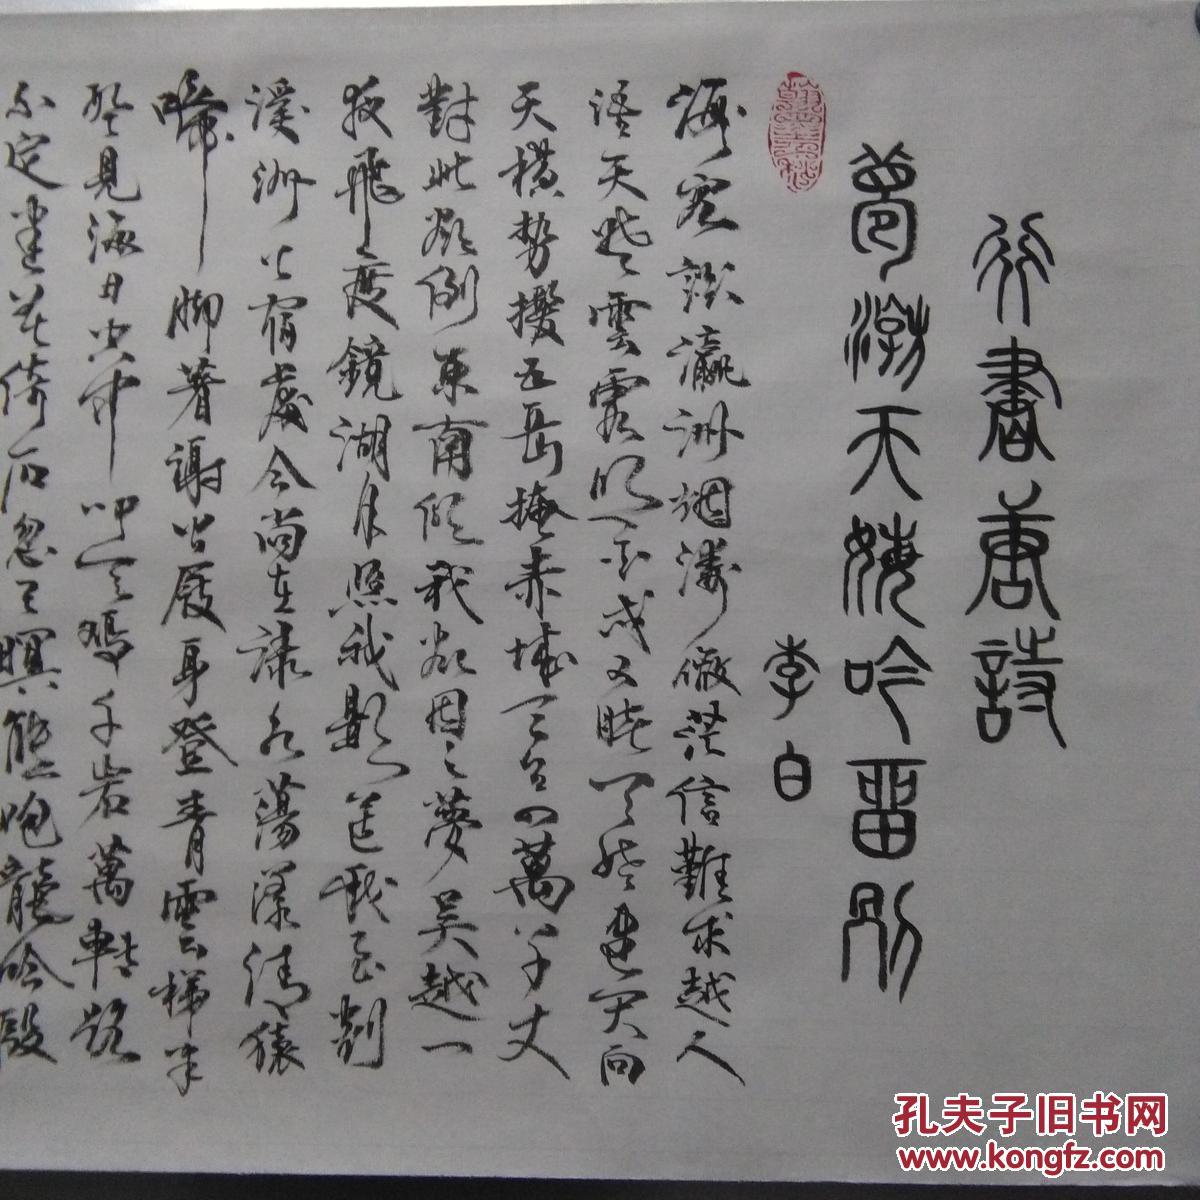 行書唐詩
夢游天姥吟留別
李白
海客談瀛洲烟濤微茫信難求越人
語天姥雲霓明滅或可睹天姥連天向
天橫勢撥五岳掩赤城天台四萬八千丈
對此欲倒東南傾我欲因之夢吳越一
夜飛度鏡湖月照我影送我至剡
溪洲公宿處今尚在淥水蕩漾清猿
啼脚著謝公屐身登青雲梯半
壁見海日空中聞天鷄千岩萬轉路
不定迷花倚石忽已暝熊咆龍吟殷
孔夫子旧书网
www.kongfz.com